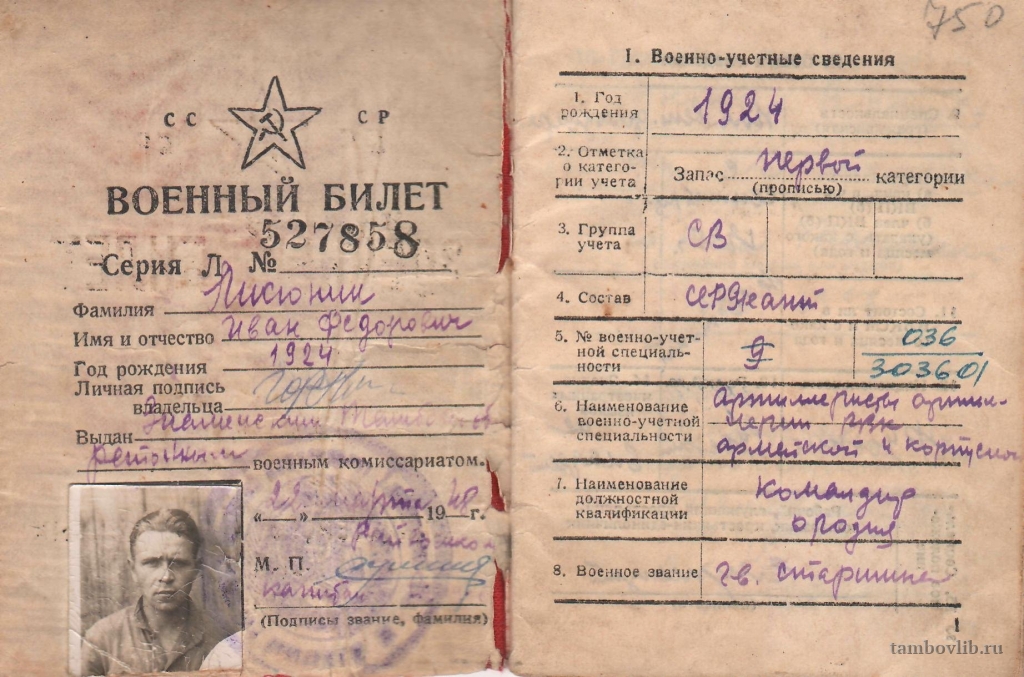 750
СС СР
ВОЕННЫЙ БИЛЕТ
527858
Серия Л №
Фамилия
Имя и отчество Иван Федорович
Год рождения 1924
Личная подпись
владельца
Выдан Знаменским Тамбовской
военным комиссариатом.
„25“ марта 1948г.
М. П.
капитан
(Подписы звание, фамилия)
I. Военно-учетные сведения
1. Год рождения 1924
2. Отметка о категории учета Запас первой категории
(прописью)
3. Группа учета СВ
4. Состав сержант
5. № военно-учетной специальности 9 036
303601
6. Наименование военно-учетной специальности артиллеристы артиллерии РВК
армейской и корпусной
7. Наименование должностной квалификации Командир
орудия
8. Военное звание гв. старшина
1
tambovlib.ru